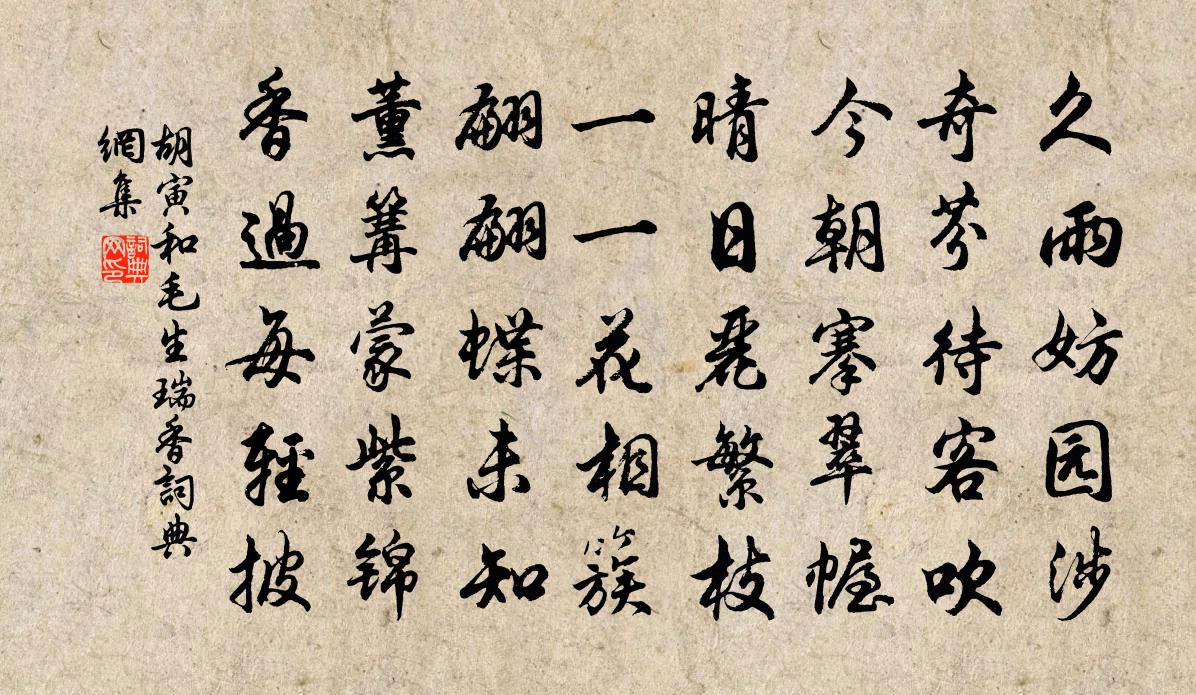 久雨妨园涉
奇芬待客吹
今朝搴翠幄
晴日麗繁枝
一一花相簇
翩翩蝶未知
薰篝蒙紫锦
香過每輕披
胡寅和毛生瑞香詞典
網集
詞典
网印